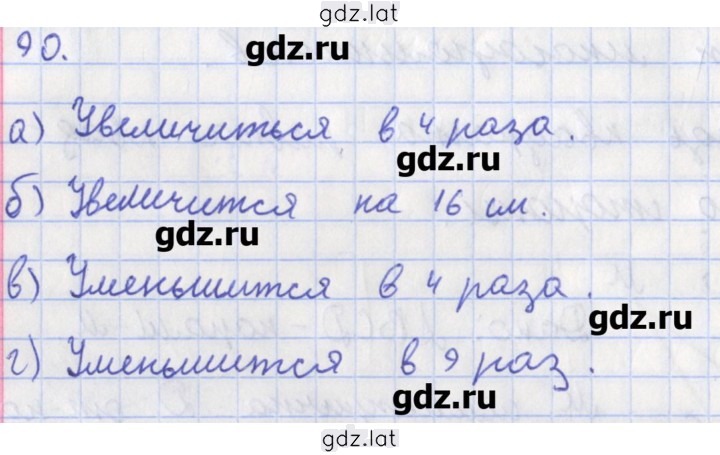 gdz.lat
90.
gdz.ru
а) Увеличиться в 4 раза.
gdz.ru
б) Увеличится на 16 см.
gdz.ru
в) Уменьшится в 4 раза.
gdz.ru
г) Уменьшится в 9 раз.
gdz.ru
gdz.lat